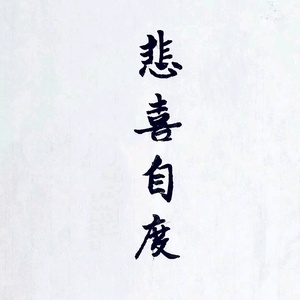 悲喜自度